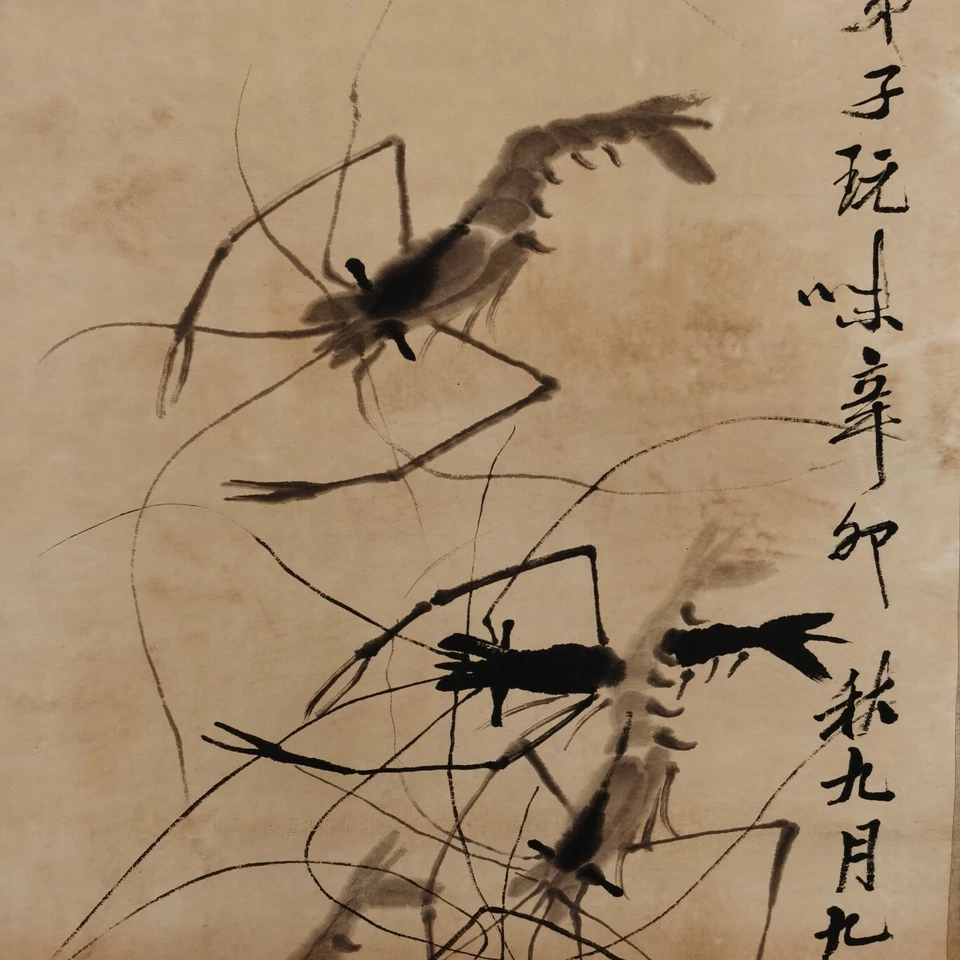 弟子玩味辛卯秋九月九